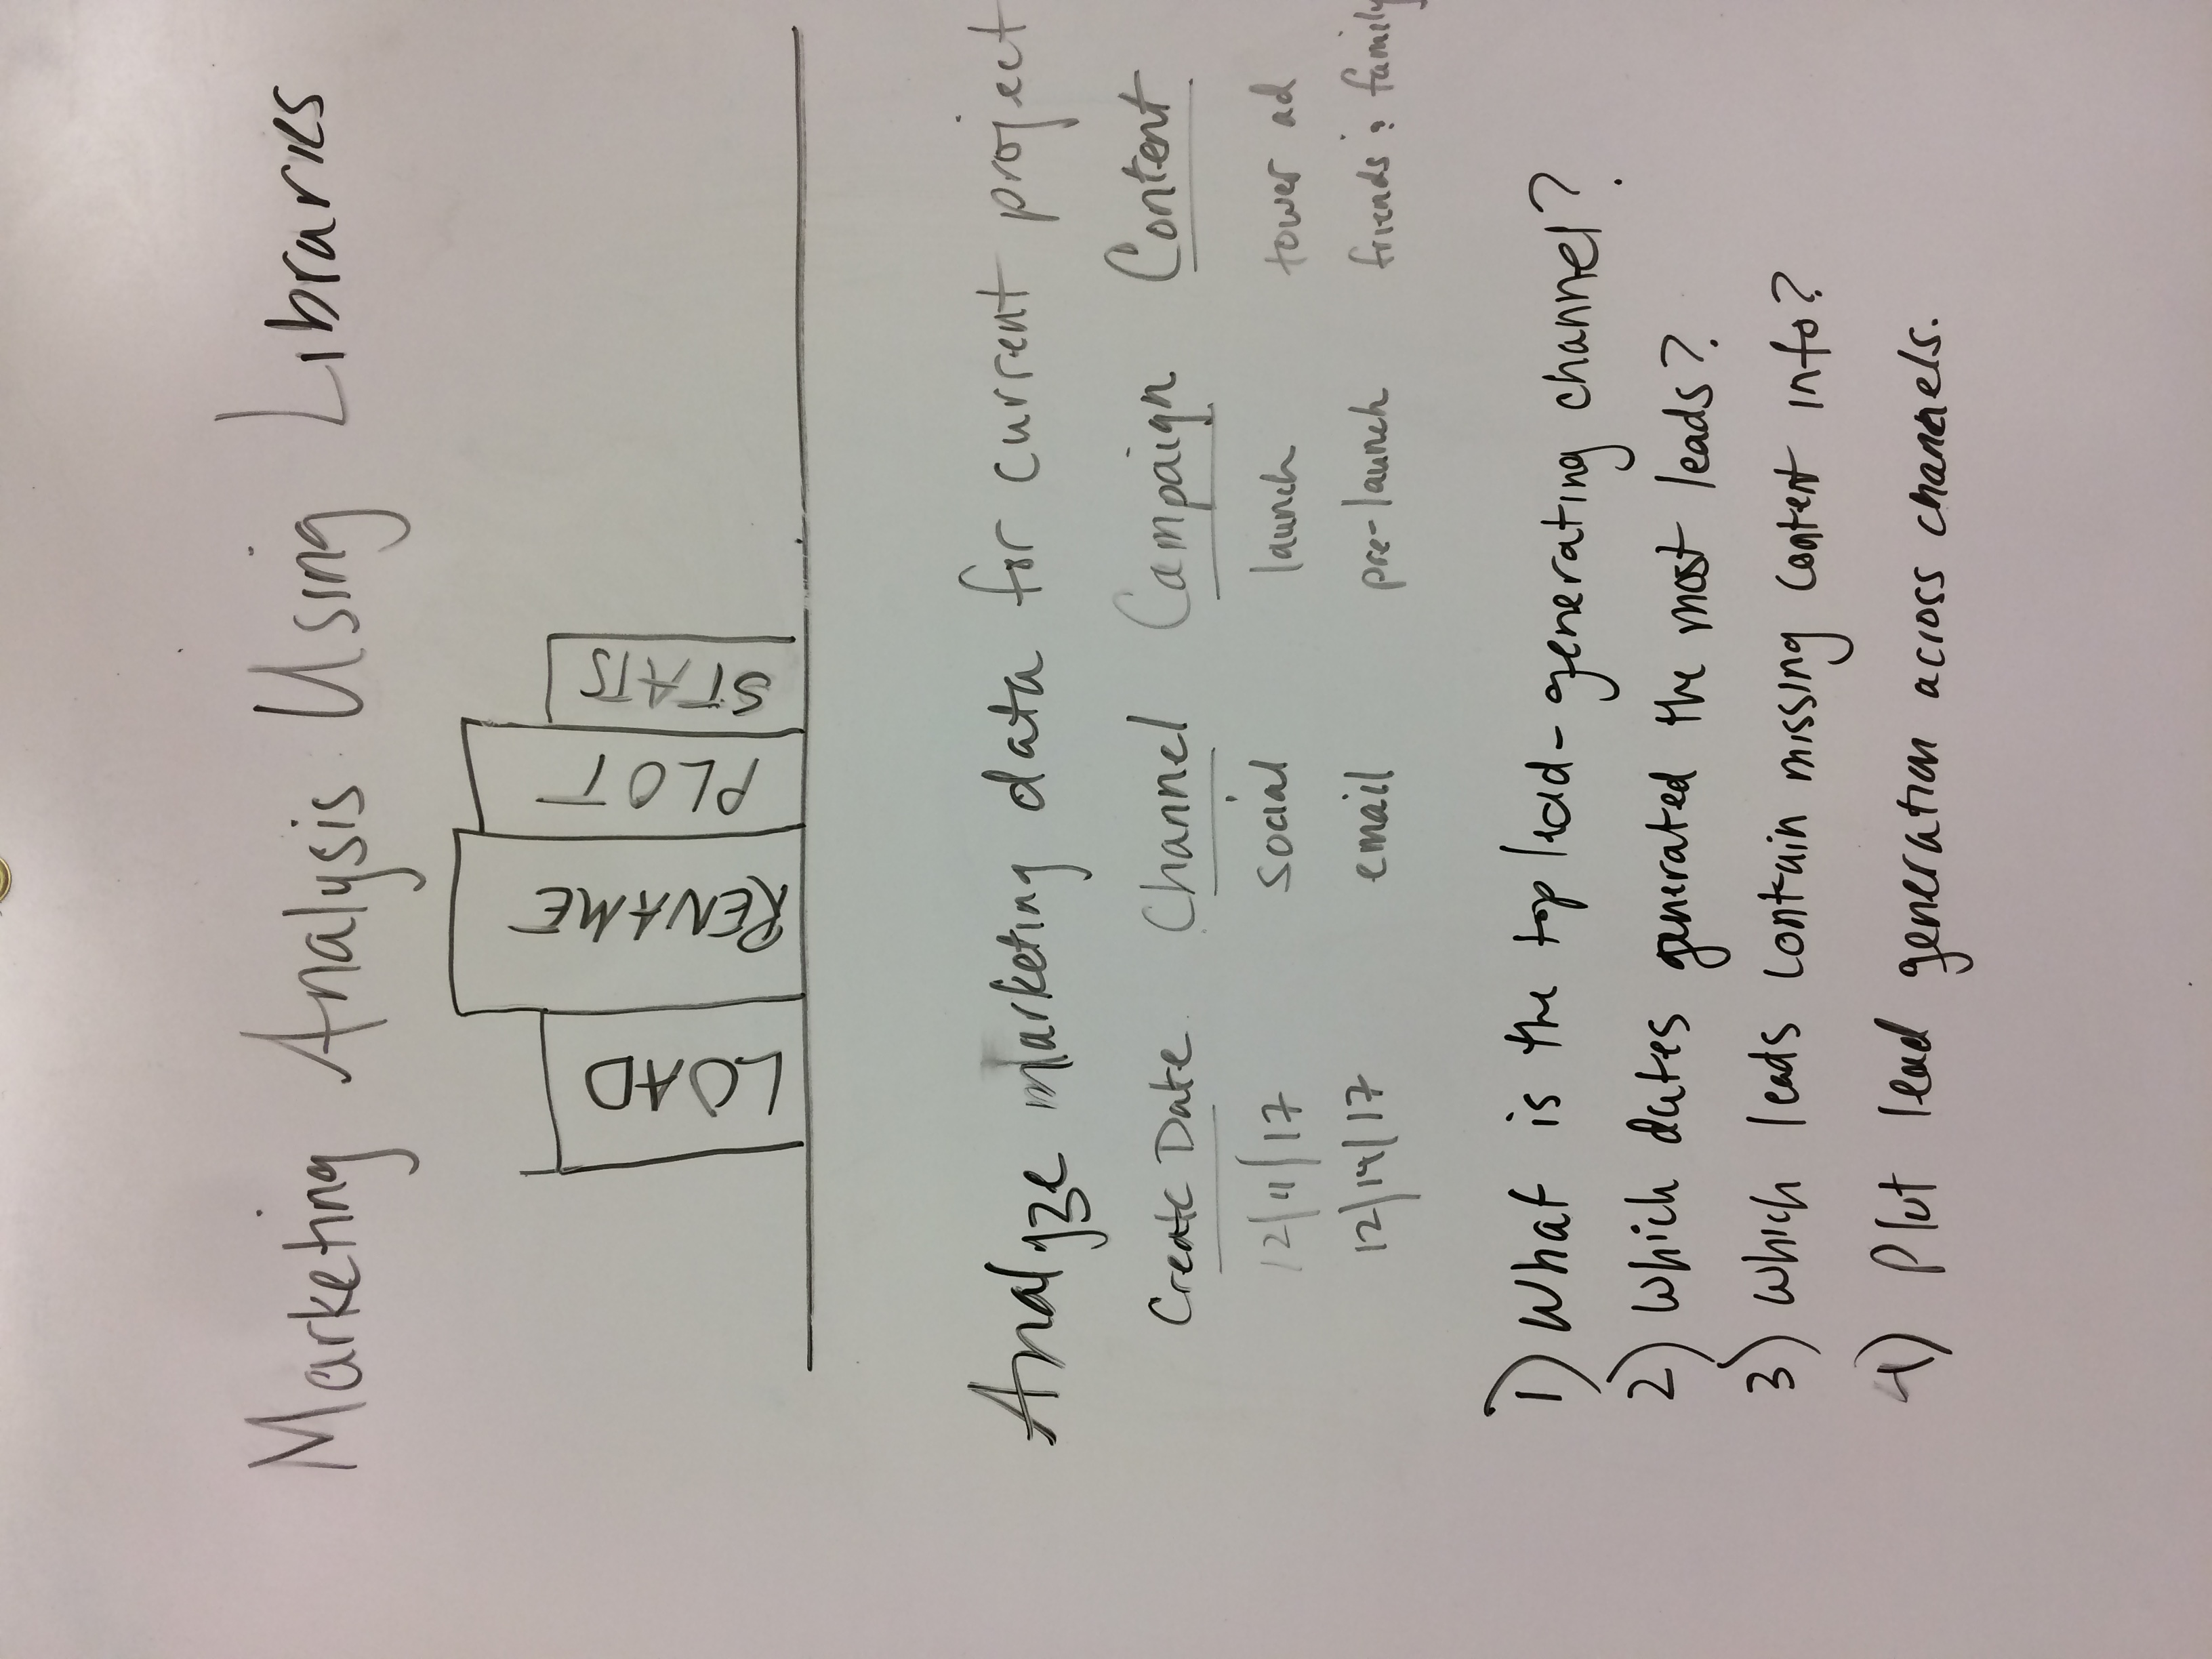 Marketing Analysis Using Libraries
LOAD
RENAME
PLOT
STATS
Analyze marketing data for current project
Create Date Channel Campaign Content
12/11/17 social launch tower ad
12/14/17 email pre-launch friends & family
1) What is the top lead-generating channel?
2) Which dates generated the most leads?
3) Which leads contain missing content info?
4) Plot lead generation across channels.